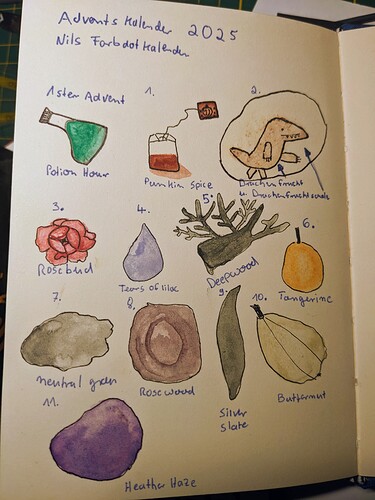 Advents Kalender 2025
Nils Farbdot Kalender
1ster Advent
1.
2.
Potion Hour
Pumkin Spice
Drachenfrucht
u. Drachenfruchtschale
3.
4.
5.
6.
Rosebud
Tears of lilac
Deepwood
Tangerine
7.
8.
9.
10.
neutral green
Rosewood
Silver
slate
Butternut
11.
Heather Haze